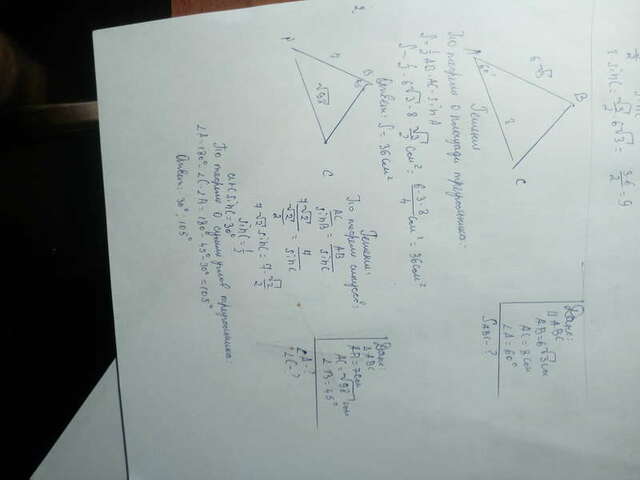 sin C = √3/2 · 6√3 = 36/2 = 9
Дано:
△ABC
AB=6√3 см
AC=8 см
∠A=60°
S ABC-?
A
60°
6√3
B
C
Решение
По теореме о площади треугольника:
S=½AB·AC·sin A
S=½·6√3·8·√3/2 см² = 6·3·8/4 см² = 36 см²
Ответ: S=36 см²
2.
Дано:
△ABC
AB=7см
AC=√98 см
∠B=45°
∠A-?
∠C-?
7
√98
C
Решение:
По теореме синусов:
AC/sin B = AB/sin C
7√2/(√2/2) = 7/sin C
7√2 sin C = 7·√2/2
sin C = ½
arcsin C = 30°
По теореме о сумме углов треугольника:
∠A=180°-∠C-∠A=180°-45°-30°=105°
Ответ: 30°, 105°